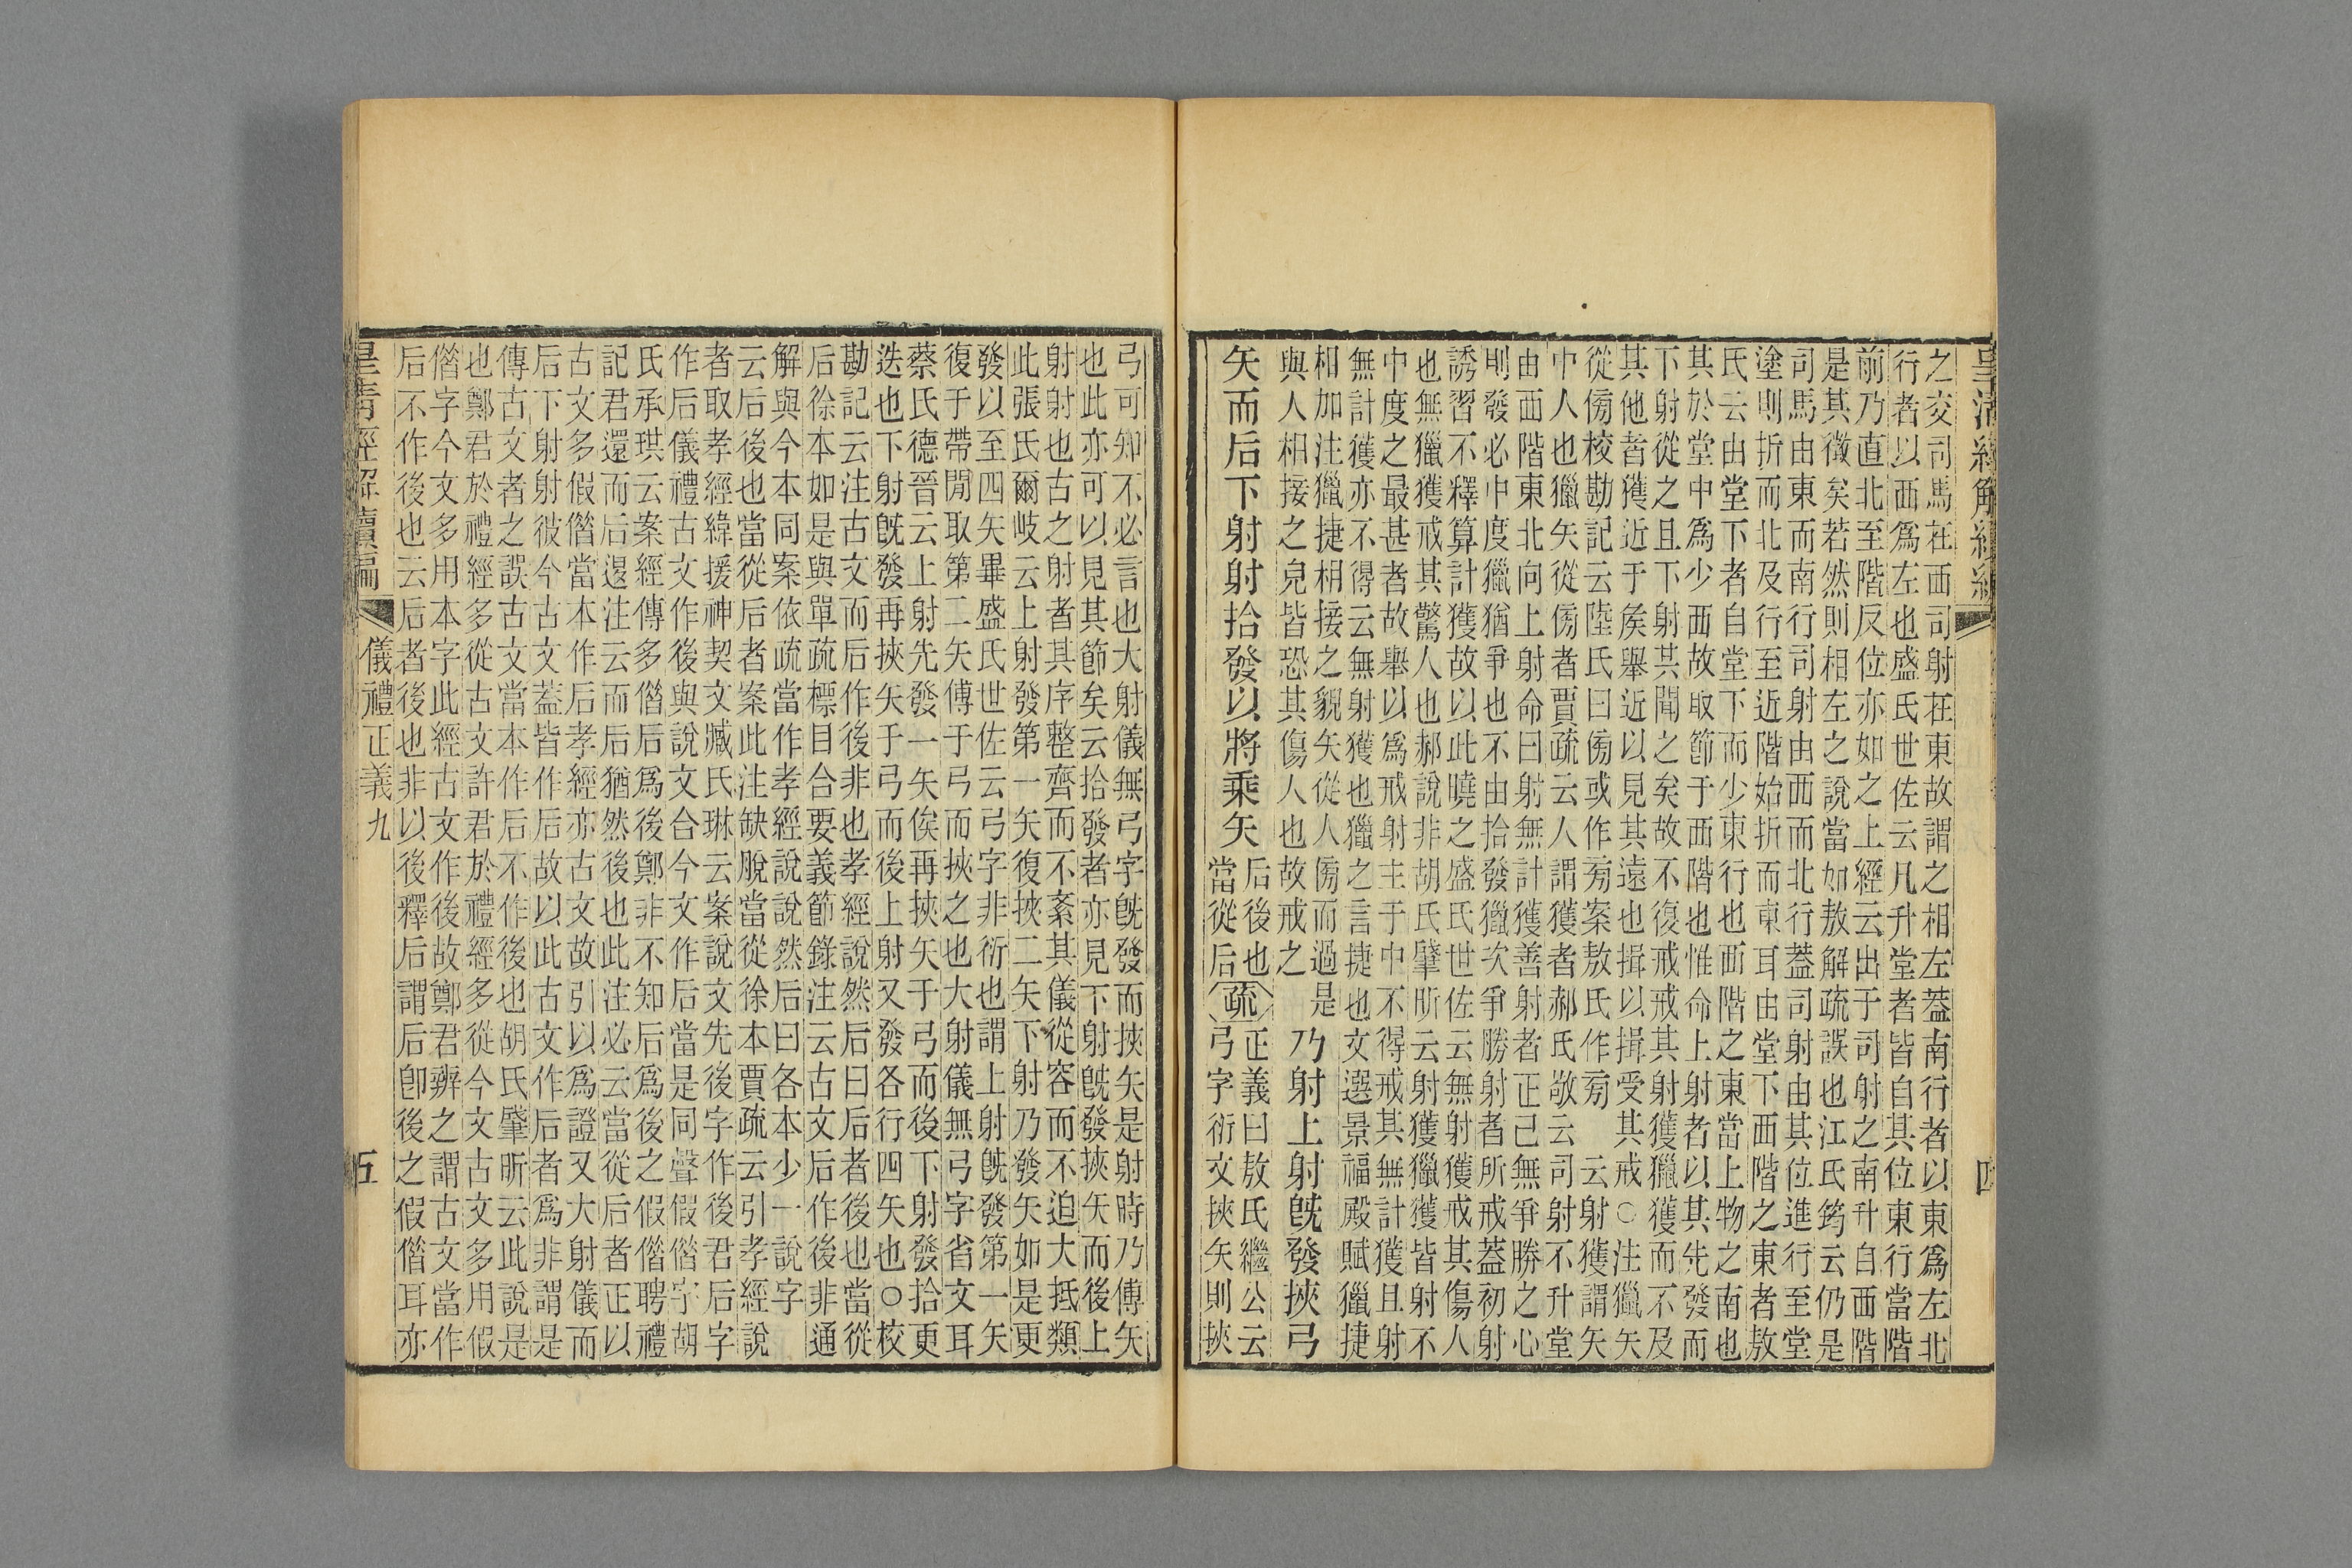 皇清經解續編 四
之交司馬在西司射在東故謂之相左蓋南行者以東爲左北
行者以西爲左也盛氏世佐云凡升堂者皆自其位東行當階
前乃直北至階反位亦如之上經云出于司射之南升自西階
是其徵矣若然則相左之說當如敖解疏誤也江氏筠云仍是
司馬由東而南行司射由西而北行蓋司射由其位進行至堂
塗則折而北及行至近階始折而東耳由堂下西階之東者敖
氏云由堂下者自堂下而少東行也西階之東當上物之南也
其於堂中爲少西故取節于西階也惟命上射者以其先發而
下射從之且下射其聞之矣故不復戒戒其射獲獵獲而不及
其他者獲近于矦舉近以見其遠也揖以揖受其戒○注獵矢
從傍校勘記云陸氏曰傍或作旁案敖氏作旁 云射獲謂矢
中人也獵矢從傍者賈疏云人謂獲者郝氏敬云司射不升堂
由西階東北向上射命曰射無計獲善射者正己無爭勝之心
則發必中度獵猶爭也不由拾發獵次爭勝射者所戒蓋初射
誘習不釋算計獲故以此曉之盛氏世佐云無射獲戒其傷人
也無獵獲戒其驚人也郝說非胡氏肇昕云射獲獵獲皆射不
中度之最甚者故舉以爲戒射主于中不得戒其無計獲且射
無計獲亦不得云無射獲也獵之言捷也文選景福殿賦獵捷
相加注獵捷相接之貌矢從人傍而過是
與人相接之皃皆恐其傷人也故戒之
乃射上射旣發挾弓
矢而后下射射拾發以將乘矢
后後也
當從后
疏
正義曰敖氏繼公云
弓字衍文挾矢則挾
弓可知不必言也大射儀無弓字旣發而挾矢是射時乃傅矢
也此亦可以見其節矣云拾發者亦見下射旣發挾矢而後上
射射也古之射者其序整齊而不紊其儀從容而不迫大抵類
此張氏爾岐云上射發第一矢復挾二矢下射乃發矢如是更
發以至四矢畢盛氏世佐云弓字非衍也謂上射旣發第一矢
復于帶閒取第二矢傅于弓而挾之也大射儀無弓字省文耳
蔡氏德晉云上射先發一矢俟再挾矢于弓而後下射發拾更
迭也下射旣發再挾矢于弓而後上射又發各行四矢也○校
勘記云注古文而后作後非也孝經說然后曰后者後也當從
后徐本如是與單疏標目合要義節錄注云古文后作後非通
解與今本同案依疏當作孝經說說然后曰各本少一說字
云后後也當從后者案此注缺脫當從徐本賈疏云引孝經說
者取孝經緯援神契文臧氏琳云案說文先後字作後君后字
作后儀禮古文作後與說文合今文作后當是同聲假偺字胡
氏承珙云案經傳多偺后爲後鄭非不知后爲後之假偺聘禮
記君還而后退注云而后猶然後也此注必云當從后者正以
古文多假偺當本作后孝經亦古文故引以爲證又大射儀而
后下射射彼今古文蓋皆作后故以此古文作后者爲非謂是
傳古文者之誤古文當本作后不作後也胡氏肇昕云此說是
也鄭君於禮經多從古文許君於禮經多從今文古文多用假
偺字今文多用本字此經古文作後故鄭君辨之謂古文當作
后不作後也云后者後也非以後釋后謂后卽後之假偺耳亦
皇清經解續編 儀禮正義九 五